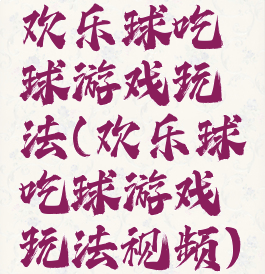 欢乐球吃
球游戏玩
法(欢乐球
吃球游戏
玩法视频)